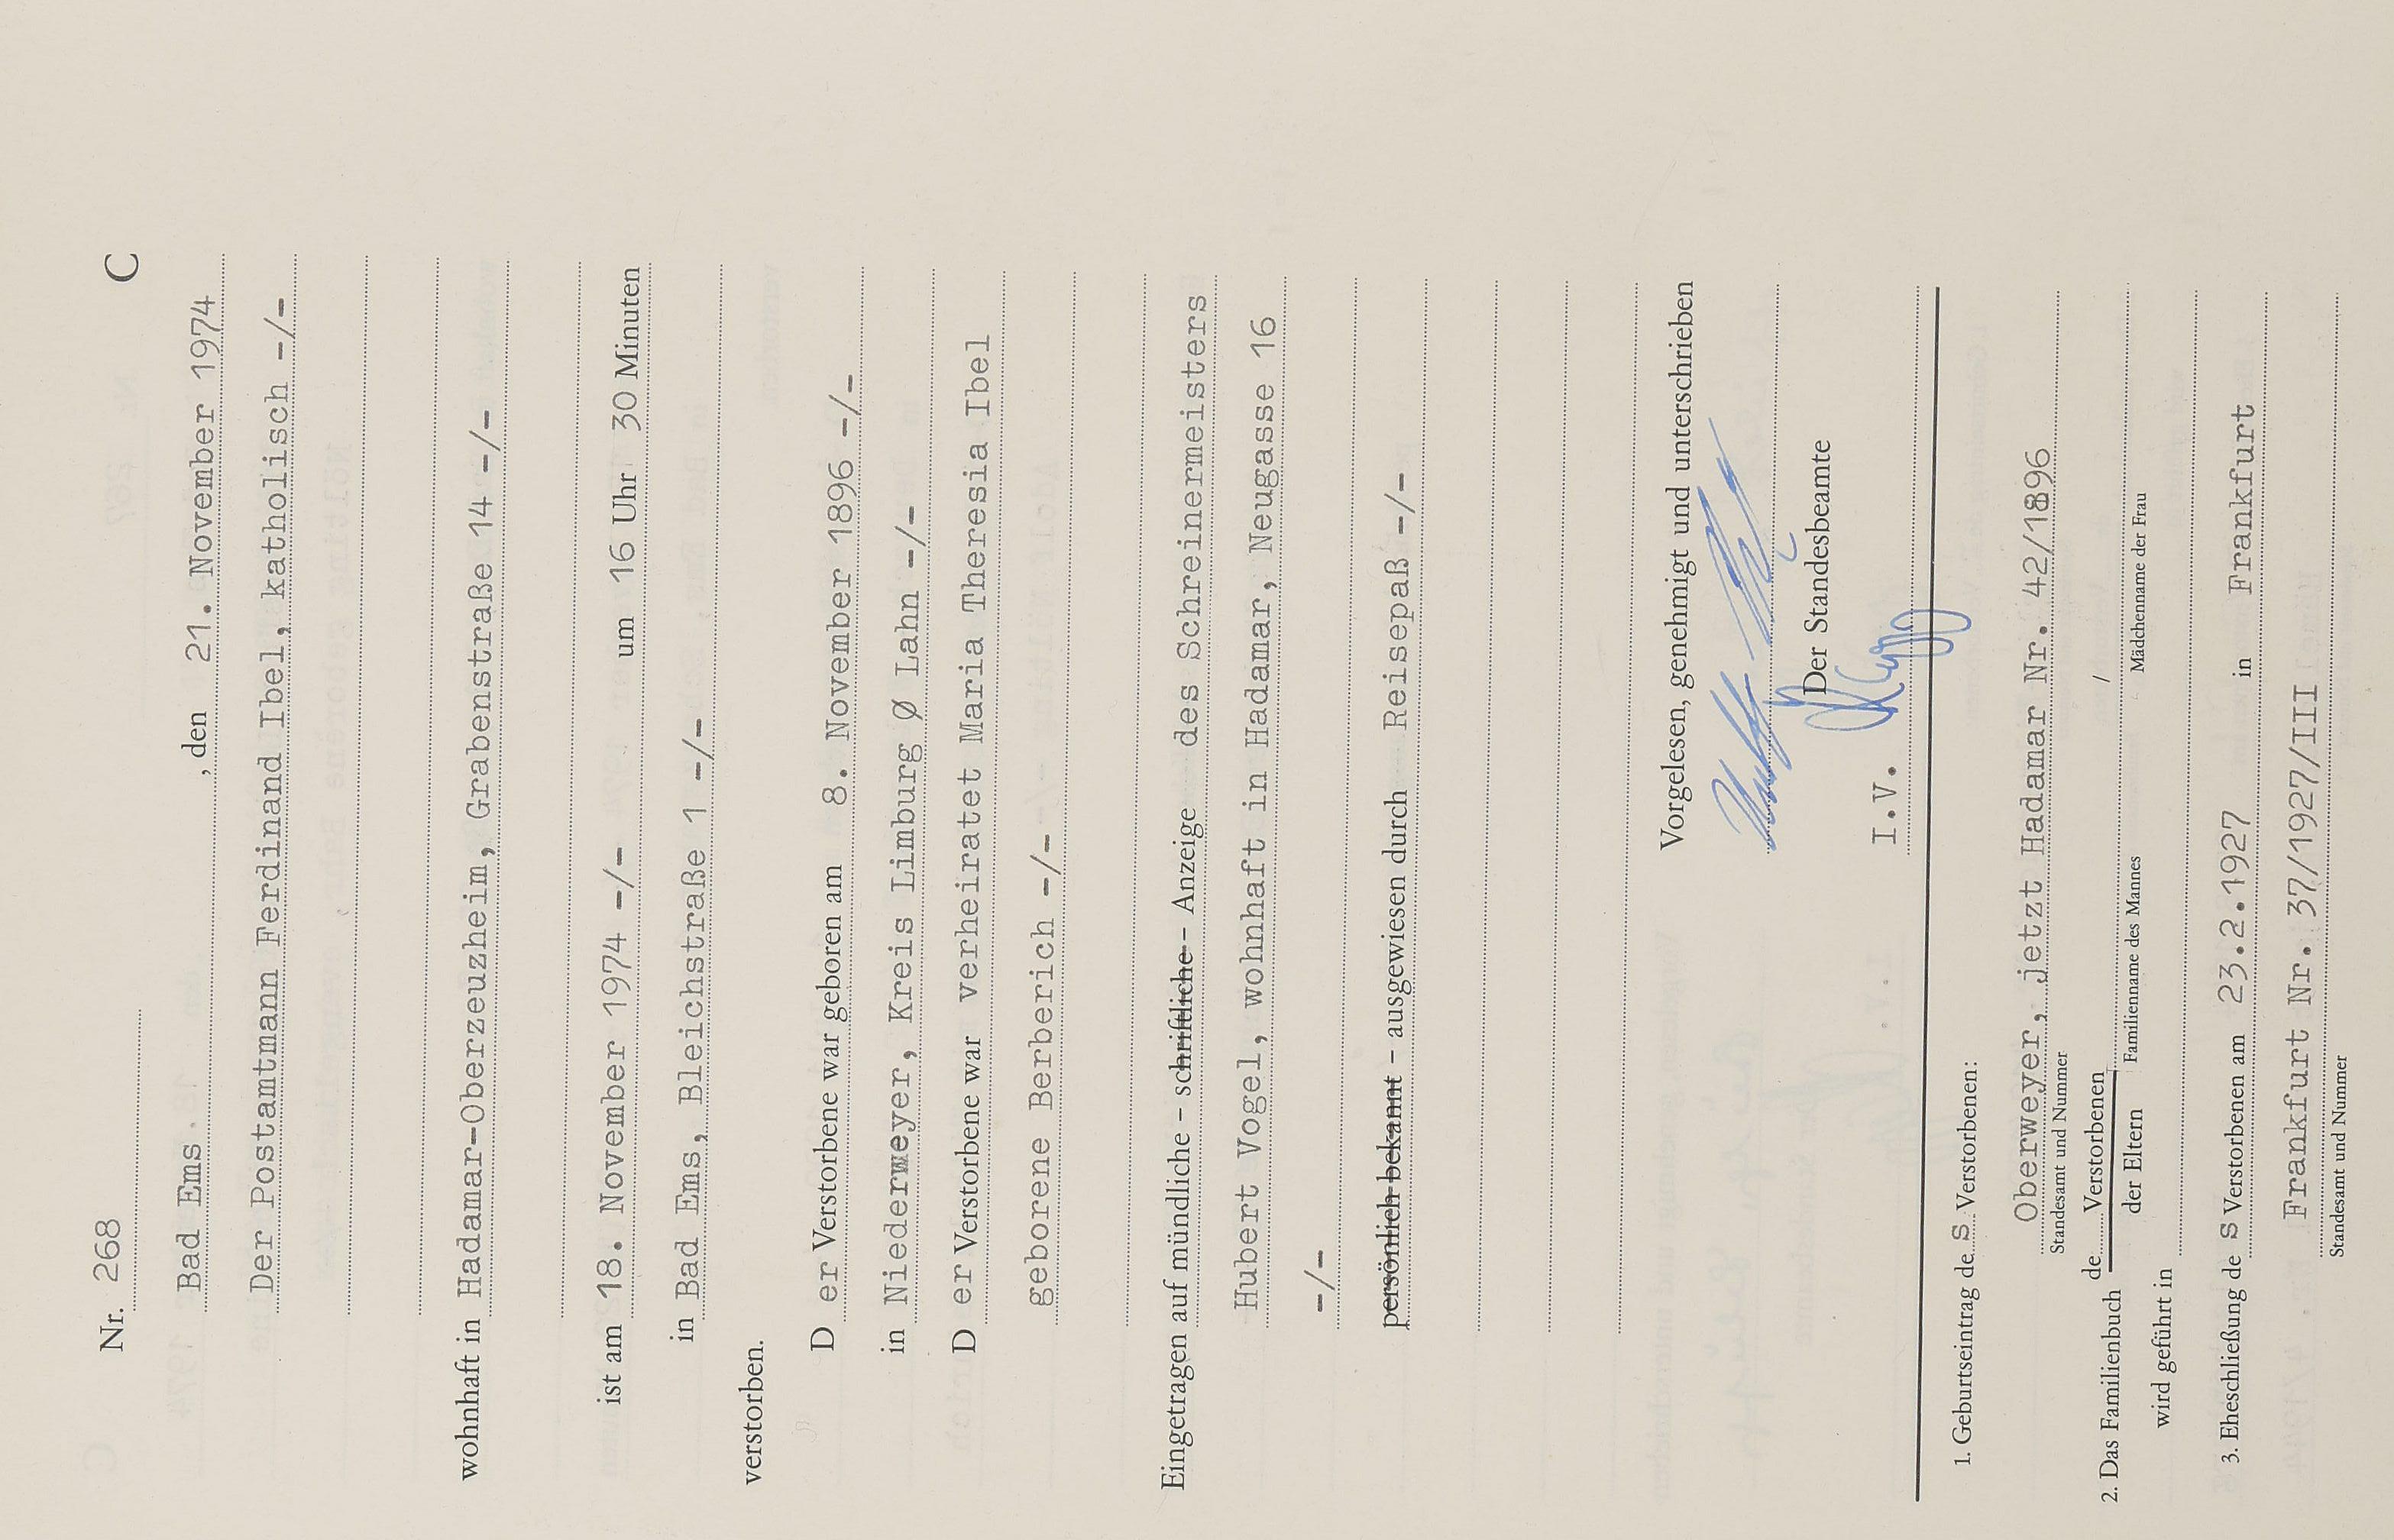 Nr. 268 C
Bad Ems, den 21. November 1974
Der Postamtmann Ferdinand Ibel, katholisch -/-
wohnhaft in Hadamar-Oberzeuzheim, Grabenstraße 14 -/-
ist am 18. November 1974 -/- um 16 Uhr 30 Minuten
in Bad Ems, Bleichstraße 1 -/-
verstorben.
D er Verstorbene war geboren am 8. November 1896 -/-
in Niederweyer, Kreis Limburg Ø Lahn -/-
D er Verstorbene war verheiratet Maria Theresia Ibel
geborene Berberich -/-
Eingetragen auf mündliche - schriftliche - Anzeige des Schreinermeisters
Hubert Vogel, wohnhaft in Hadamar, Neugasse 16
-/-
persönlich bekannt - ausgewiesen durch Reisepaß -/-
Vorgelesen, genehmigt und unterschrieben
Der Standesbeamte
I.V.
1. Geburtseintrag des Verstorbenen:
Oberweyer, jetzt Hadamar Nr. 42/1896
Standesamt und Nummer
2. Das Familienbuch de Verstorbenen /
der Eltern Familienname des Mannes Mädchenname der Frau
wird geführt in
3. Eheschließung de s Verstorbenen am 23.2.1927 in Frankfurt
Frankfurt Nr. 37/1927/III
Standesamt und Nummer